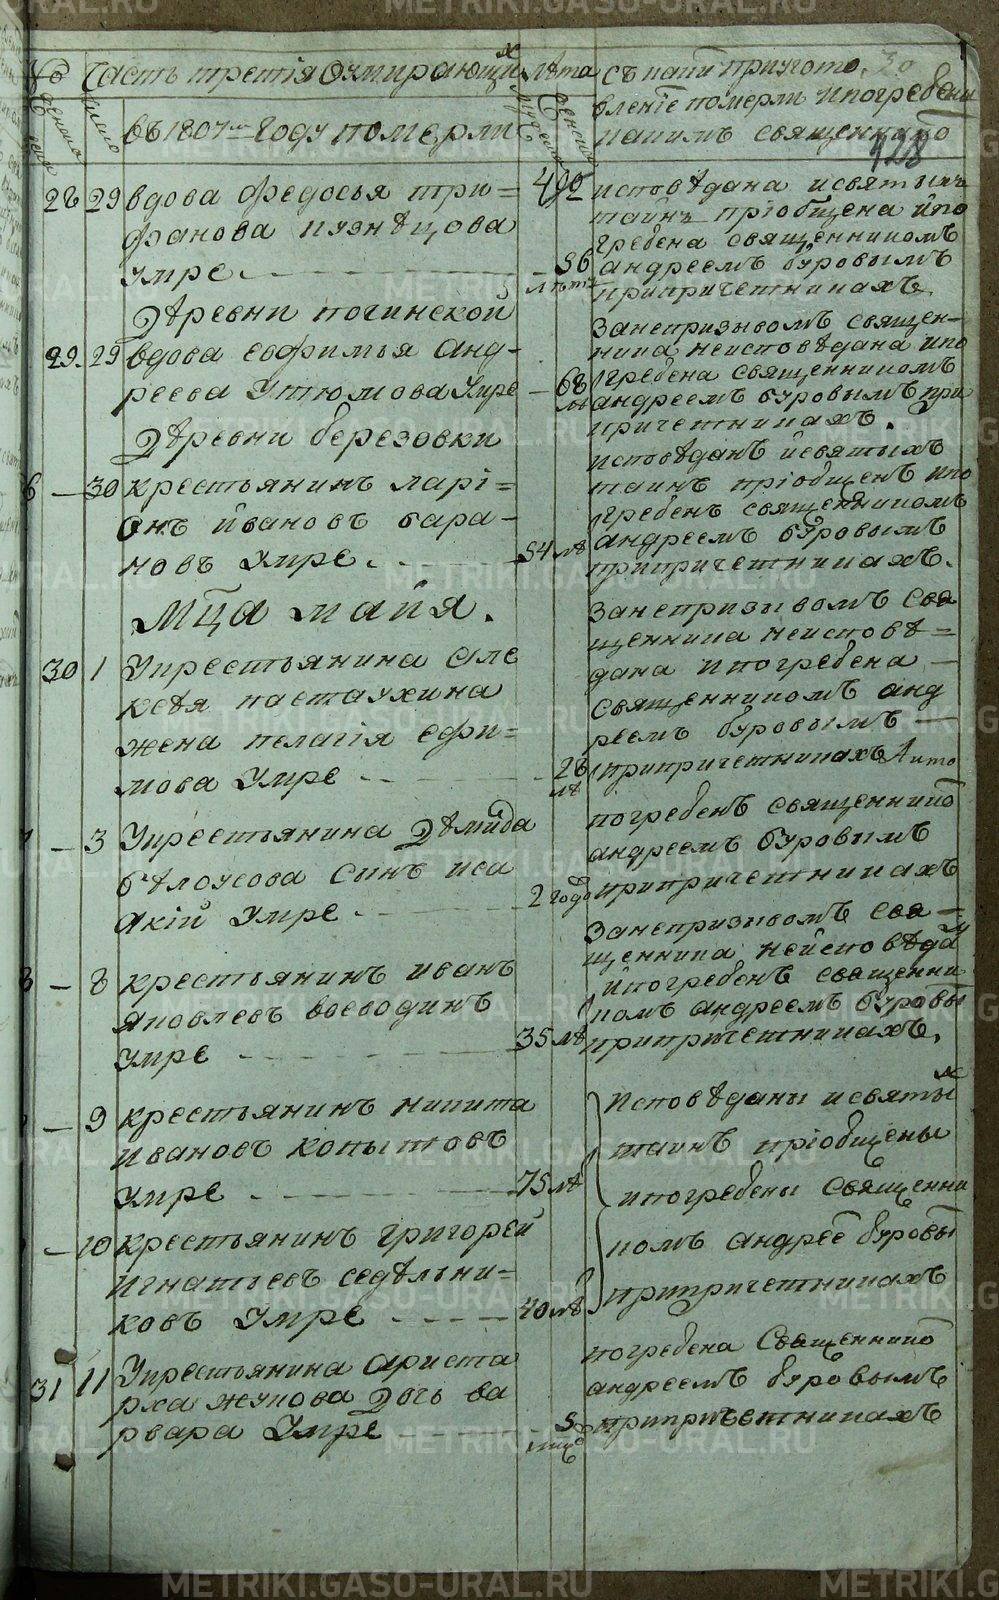 Часть третія оумирающихъ
въ 1807мъ году померли
лѣта
съ какимъ пригото
вленіе померли и погребены
какимъ священнико
428
28 29 вдова федосья три=
фанова кузнѣцова
умре
56 лѣтъ
исповѣдана исвятыхъ
таинъ пріобщена ипо
гребена священникомъ
андреемъ буровымъ
припричетникахъ.
Дѣревни починской
29. 29 вдова евфимья анд-
реева утюмова умре
68 лѣ
занепризывомъ священ-
ника неисповѣдана ипо
гребена священникомъ
андреемъ буровымъ при
причетникахъ.
Дѣревни березовки
— 30 крестьянинъ ларі=
онъ ивановъ бара-
новъ умре.
54 лѣ
исповѣданъ исвятыхъ
таинъ пріобщенъ ипо
гребенъ священникомъ
андреемъ буровымъ
припричетникахъ.
Мца майя.
30 1 укрестьянина але
ксѣя пастаухина
жена пелагія ефи=
мова умре
28 лѣ
занепризывомъ свя
щенника неисповѣ=
дана ипогребена —
священникомъ анд
реемъ буровымъ —
припричетникахъ
— 3 укрестьянина Дѣмида
бѣлоусова сынъ иса
акій умре
2 года
погребенъ священнико
андреемъ буровымъ
припричетникахъ
— 8 крестьянинъ иванъ
яковлевъ воеводинъ
умре
35 лѣ
занепризывомъ свя=
щенника неисповѣда
ипогребенъ священни
комъ андреемъ буровы
припричетникахъ.
— 9 крестьянинъ никита
ивановъ копытовъ
умре
75 лѣ
— 10 крестьянинъ григорей
игнатьевъ седѣльни=
ковъ умре
40 лѣ
исповѣданы исвятыхъ
таинъ пріобщены
ипогребены священни
комъ андрее буровы
припричетникахъ
31 11 укрестьянина ариста
рха жукова дочь ва
рвара умре
5 мцъ
погребена священнико
андреемъ буровымъ
припричетникахъ
METRIKI.GASO-URAL.RU